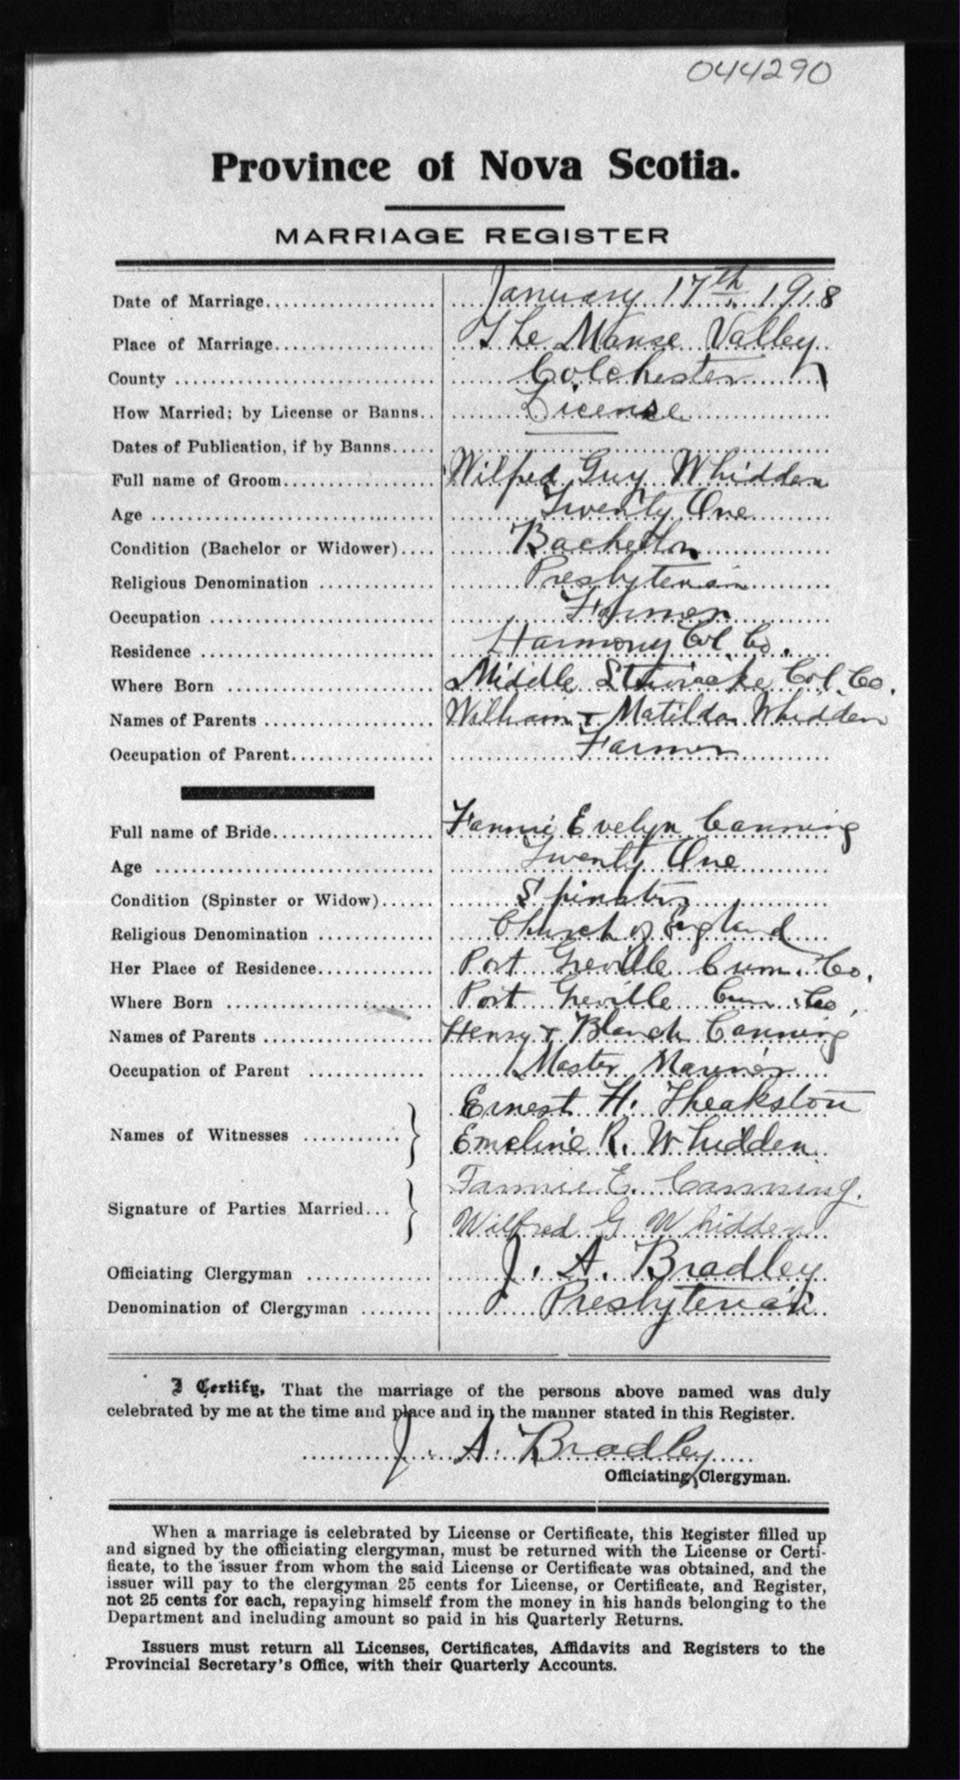 044290
Province of Nova Scotia.
MARRIAGE REGISTER
Date of Marriage.................... January 17th 1918
Place of Marriage.................. The Manse Valley
County ............................. Colchester
How Married; by License or Banns.. License
Dates of Publication, if by Banns.....
Full name of Groom.................. Wilfred Guy Whidden
Age ................................ Twenty One
Condition (Bachelor or Widower).... Bachellor
Religious Denomination ............. Presbyterian
Occupation ......................... Farmer
Residence .......................... Harmony Col. Co.
Where Born ......................... Middle Stewiacke Col. Co.
Names of Parents ................... William & Matilda Whidden
Occupation of Parent................ Farmer
Full name of Bride.................. Fannie Evelyn Canning
Age ................................ Twenty One
Condition (Spinster or Widow)...... Spinster
Religious Denomination ............. Church of England
Her Place of Residence............. Port Greville Cum. Co.
Where Born ......................... Port Greville Cum. Co.
Names of Parents ................... Henry & Blanch Canning
Occupation of Parent ............. Master Mariner
Ernest H. Theakston
Names of Witnesses ...........
Emeline R. Whidden
Fannie E. Canning.
Signature of Parties Married...
Wilfred G Whidden
Officiating Clergyman ............. J. A. Bradley
Denomination of Clergyman ........ Presbyterian
I Certify, That the marriage of the persons above named was duly
celebrated by me at the time and place and in the manner stated in this Register.
J. A. Bradley
Officiating Clergyman.
When a marriage is celebrated by License or Certificate, this Register filled up
and signed by the officiating clergyman, must be returned with the License or Certi-
ficate, to the issuer from whom the said License or Certificate was obtained, and the
issuer will pay to the clergyman 25 cents for License, or Certificate, and Register,
not 25 cents for each, repaying himself from the money in his hands belonging to the
Department and including amount so paid in his Quarterly Returns.
Issuers must return all Licenses, Certificates, Affidavits and Registers to the
Provincial Secretary's Office, with their Quarterly Accounts.